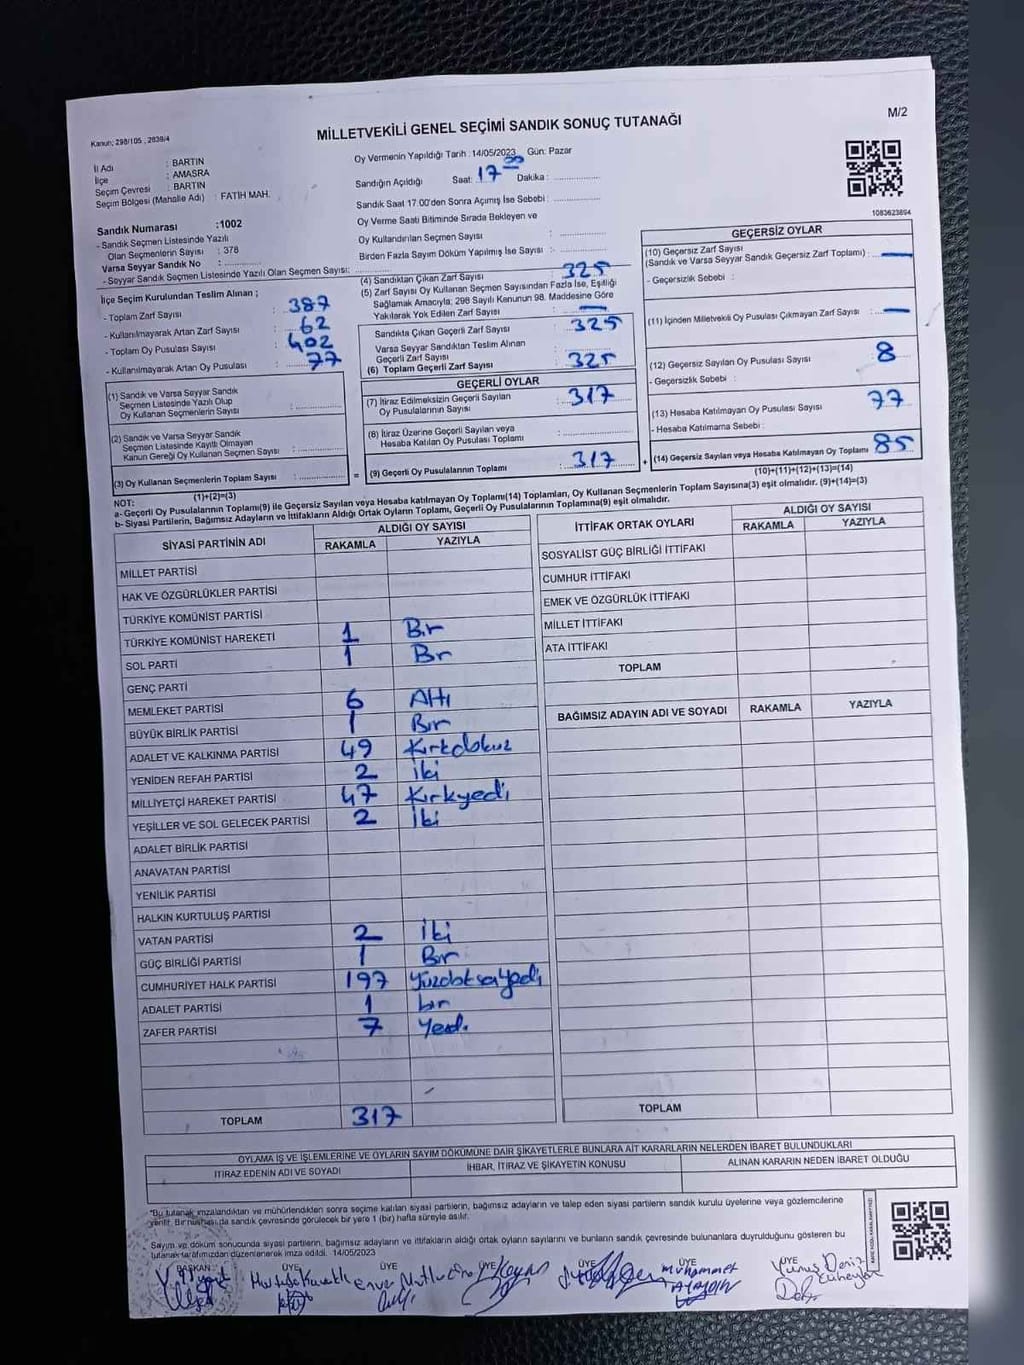 Kanun; 298/105 ; 2839/4
MİLLETVEKİLİ GENEL SEÇİMİ SANDIK SONUÇ TUTANAĞI
M/2
İl Adı : BARTIN
İlçe : AMASRA
Seçim Çevresi : BARTIN
Seçim Bölgesi (Mahalle Adı) : FATİH MAH.
Oy Vermenin Yapıldığı Tarih : 14/05/2023 Gün: Pazar
Sandığın Açıldığı Saat: 17 00 Dakika :
Sandık Saat 17.00'den Sonra Açımış İse Sebebi :
Oy Verme Saati Bitiminde Sırada Bekleyen ve
Oy Kullandırılan Seçmen Sayısı :
Birden Fazla Sayım Döküm Yapılmış İse Sayısı :
1083623894
Sandık Numarası :1002
- Sandık Seçmen Listesinde Yazılı
Olan Seçmenlerin Sayısı : 378
Varsa Seyyar Sandık No :
- Seyyar Sandık Seçmen Listesinde Yazılı Olan Seçmen Sayısı:
İlçe Seçim Kurulundan Teslim Alınan ;
- Toplam Zarf Sayısı : 387
- Kullanılmayarak Artan Zarf Sayısı : 62
- Toplam Oy Pusulası Sayısı : 402
- Kullanılmayarak Artan Oy Pusulası : 77
(1) Sandık ve Varsa Seyyar Sandık
Seçmen Listesinde Yazılı Olup
Oy Kullanan Seçmenlerin Sayısı :
(2) Sandık ve Varsa Seyyar Sandık
Seçmen Listesinde Kayıtlı Olmayan
Kanun Gereği Oy Kullanan Seçmen Sayısı :
(3) Oy Kullanan Seçmenlerin Toplam Sayısı :
(1)+(2)=(3)
(4) Sandıktan Çıkan Zarf Sayısı : 325
(5) Zarf Sayısı Oy Kullanan Seçmen Sayısından Fazla İse, Eşitliği
Sağlamak Amacıyla; 298 Sayılı Kanunun 98. Maddesine Göre
Yakılarak Yok Edilen Zarf Sayısı : —
Sandıkta Çıkan Geçerli Zarf Sayısı : 325
Varsa Seyyar Sandıktan Teslim Alınan
Geçerli Zarf Sayısı :
(6) Toplam Geçerli Zarf Sayısı : 325
GEÇERLİ OYLAR
(7) İtiraz Edilmeksizin Geçerli Sayılan
Oy Pusulalarının Sayısı : 317
(8) İtiraz Üzerine Geçerli Sayılan veya
Hesaba Katılan Oy Pusulası Toplamı :
= (9) Geçerli Oy Pusulalarının Toplamı : 317
GEÇERSİZ OYLAR
(10) Geçersiz Zarf Sayısı
(Sandık ve Varsa Seyyar Sandık Geçersiz Zarf Toplamı) : —
- Geçersizlik Sebebi :
(11) İçinden Milletvekili Oy Pusulası Çıkmayan Zarf Sayısı : —
(12) Geçersiz Sayılan Oy Pusulası Sayısı : 8
- Geçersizlik Sebebi :
(13) Hesaba Katılmayan Oy Pusulası Sayısı : 77
- Hesaba Katılmama Sebebi :
+ (14) Geçersiz Sayılan veya Hesaba Katılmayan Oy Toplamı : 85
(10)+(11)+(12)+(13)=(14)
NOT:
a- Geçerli Oy Pusulalarının Toplamı(9) ile Geçersiz Sayılan veya Hesaba katılmayan Oy Toplamı(14) Toplamları, Oy Kullanan Seçmenlerin Toplam Sayısına(3) eşit olmalıdır. (9)+(14)=(3)
b- Siyasi Partilerin, Bağımsız Adayların ve İttifakların Aldığı Ortak Oyların Toplamı, Geçerli Oy Pusulalarının Toplamına(9) eşit olmalıdır.
SİYASİ PARTİNİN ADI ALDIĞI OY SAYISI
RAKAMLA YAZIYLA
MİLLET PARTİSİ
HAK VE ÖZGÜRLÜKLER PARTİSİ
TÜRKİYE KOMÜNİST PARTİSİ
TÜRKİYE KOMÜNİST HAREKETİ 1 Bir
SOL PARTİ 1 Bir
GENÇ PARTİ
MEMLEKET PARTİSİ 6 Altı
BÜYÜK BİRLİK PARTİSİ 1 Bir
ADALET VE KALKINMA PARTİSİ 49 Kırkdokuz
YENİDEN REFAH PARTİSİ 2 İki
MİLLİYETÇİ HAREKET PARTİSİ 47 Kırkyedi
YEŞİLLER VE SOL GELECEK PARTİSİ 2 İki
ADALET BİRLİK PARTİSİ
ANAVATAN PARTİSİ
YENİLİK PARTİSİ
HALKIN KURTULUŞ PARTİSİ
VATAN PARTİSİ 2 İki
GÜÇ BİRLİĞİ PARTİSİ 1 Bir
CUMHURİYET HALK PARTİSİ 197
ADALET PARTİSİ 1 bir
ZAFER PARTİSİ 7 Yedi
TOPLAM 317
İTTİFAK ORTAK OYLARI ALDIĞI OY SAYISI
RAKAMLA YAZIYLA
SOSYALİST GÜÇ BİRLİĞİ İTTİFAKI
CUMHUR İTTİFAKI
EMEK VE ÖZGÜRLÜK İTTİFAKI
MİLLET İTTİFAKI
ATA İTTİFAKI
TOPLAM
BAĞIMSIZ ADAYIN ADI VE SOYADI RAKAMLA YAZIYLA
TOPLAM
OYLAMA İŞ VE İŞLEMLERİNE VE OYLARIN SAYIM DÖKÜMÜNE DAİR ŞİKAYETLERLE BUNLARA AİT KARARLARIN NELERDEN İBARET BULUNDUKLARI
İTİRAZ EDENİN ADI VE SOYADI İHBAR, İTİRAZ VE ŞİKAYETİN KONUSU ALINAN KARARIN NEDEN İBARET OLDUĞU
"Bu tutanak imzalandıktan ve mühürlendikten sonra seçime katılan siyasi partilerin, bağımsız adayların ve talep eden siyasi partilerin sandık kurulu üyelerine veya gözlemcilerine
verilir. Bir nüshası da sandık çevresinde görülecek bir yere 1 (bir) hafta süreyle asılır.
Sayım ve döküm sonucunda siyasi partilerin, bağımsız adayların ve ittifakların aldığı ortak oyların sayılarını ve bunların sandık çevresinde bulunanlara duyrulduğunu gösteren bu
tutanak tarafımızdan düzenlenerek imza edildi. 14/05/2023
BAŞKAN ÜYE ÜYE ÜYE ÜYE ÜYE ÜYE
Muhammet
Yunus Deniz